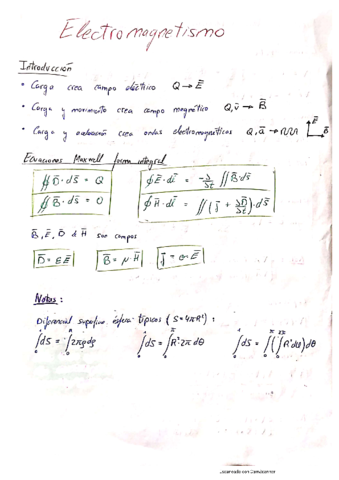 Electromagnetismo
Introducción
• Carga crea campo eléctrico Q → E̅
• Carga y movimiento crea campo magnético Q, v̅ → B̅
• Carga y aceleración crea ondas electromagnéticas Q, a̅ → E̅ B̅
Ecuaciones Maxwell forma integral
∯ D̅·dS̅ = Q
∮ E̅·dl̅ = -∂/∂t ∬ B̅·dS̅
∯ B̅·dS̅ = 0
∮ H̅·dl̅ = ∬ (J̅ + ∂D̅/∂t)·dS̅
B̅, E̅, D̅ & H̅ son campos
D̅ = εE̅
B̅ = μH̅
J̅ = σE̅
Notas:
Diferencial superficie esfera típicos (S=4πR²):
∫dS = ∫2πρdρ
∫dS = ∫R²2π dθ
∫dS = ∫(∫R²dφ)dθ
Escaneado con CamScanner